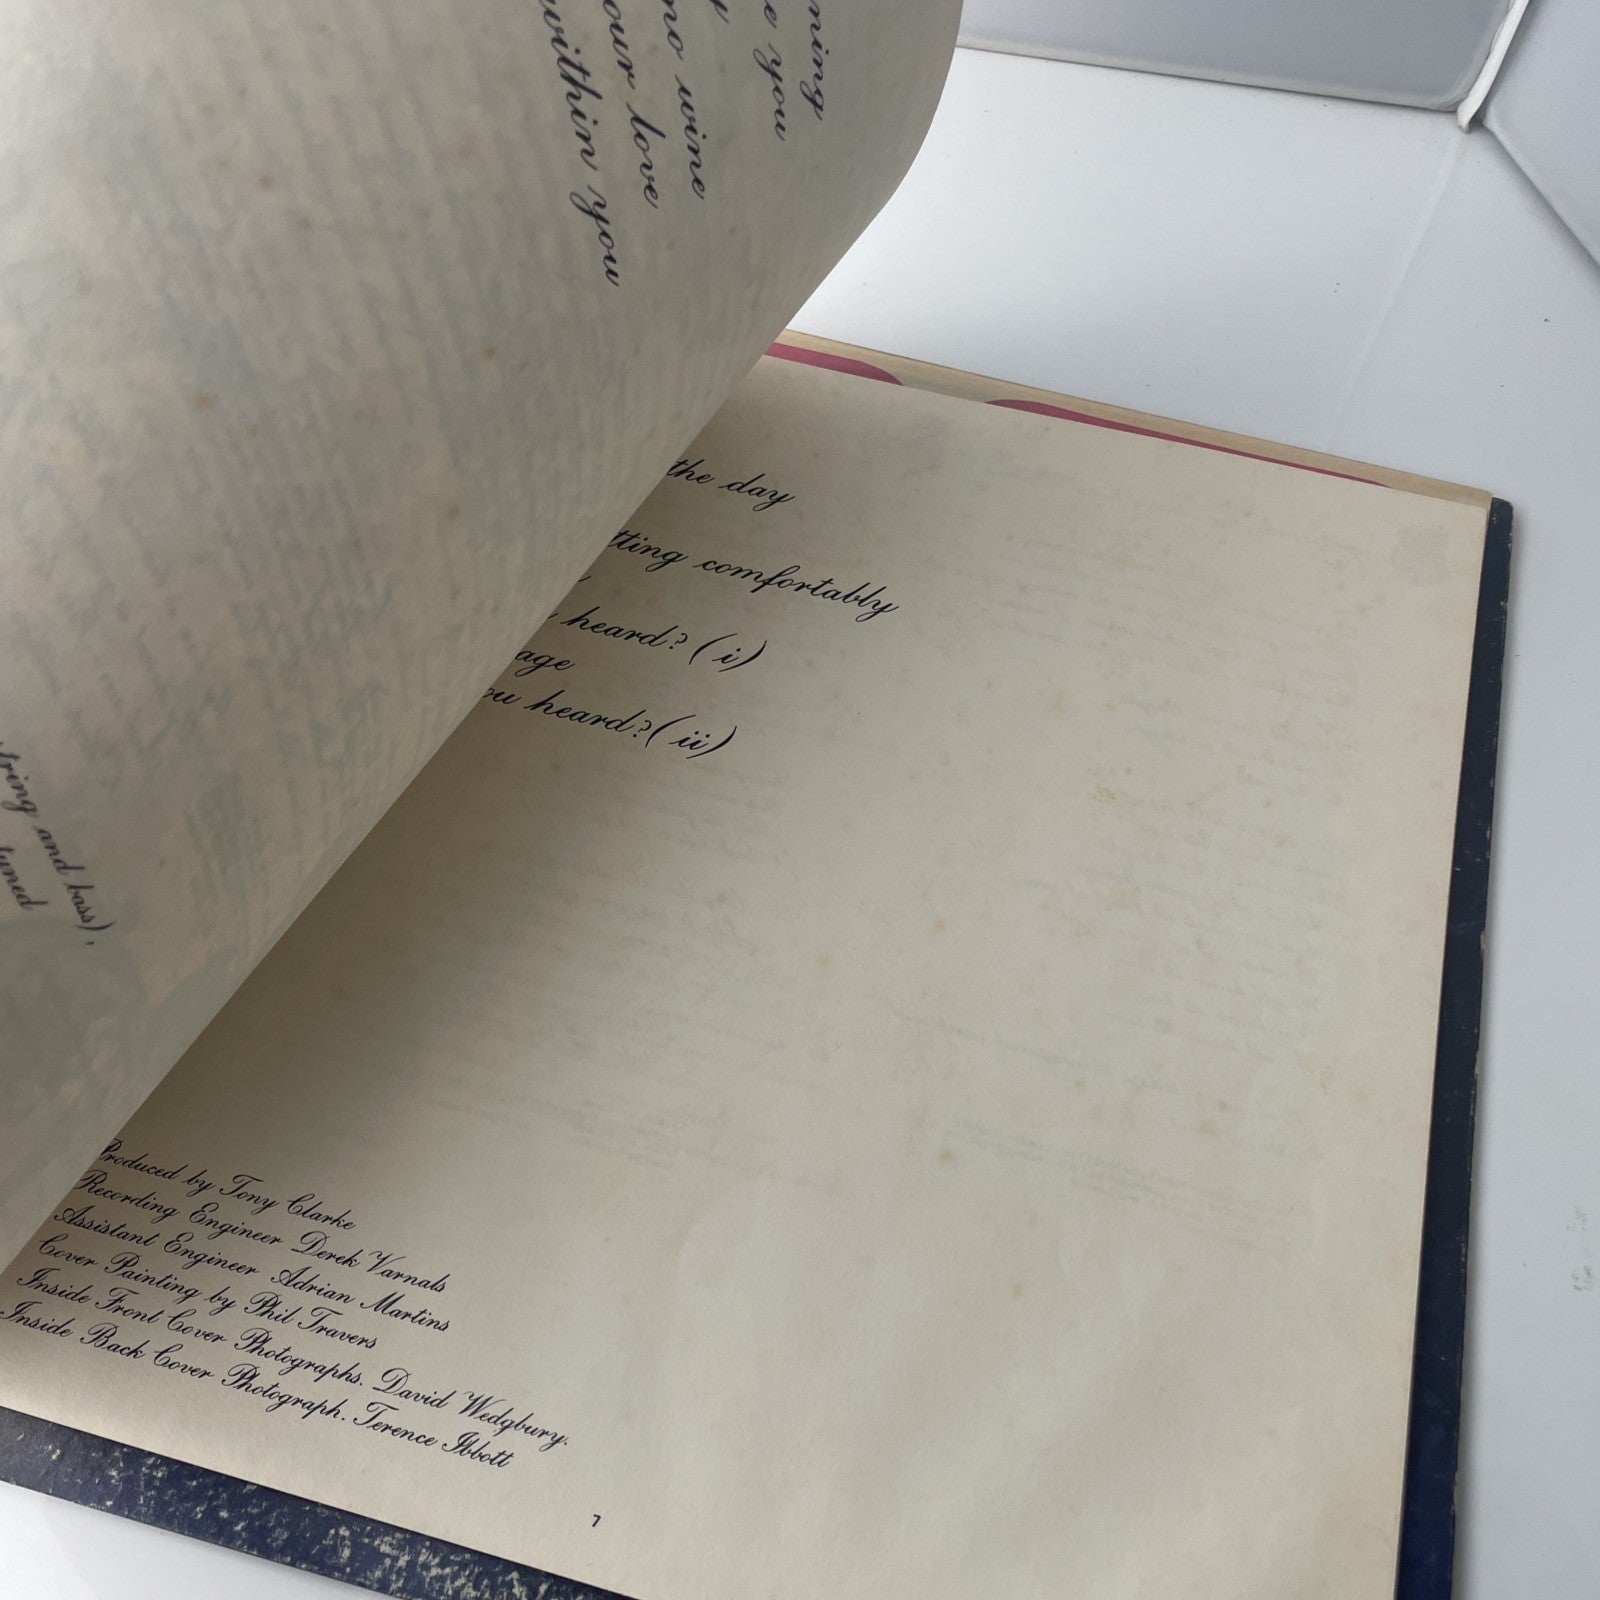 ning
e you
y
no wine
our love
within you
string and bass),
tuned
the day
tting comfortably
heard? (i)
age
ou heard? (ii)
Produced by Tony Clarke
Recording Engineer Derek Varnals
Assistant Engineer Adrian Martins
Cover Painting by Phil Travers
Inside Front Cover Photographs. David Wedgbury.
Inside Back Cover Photograph. Terence Ibbott
7